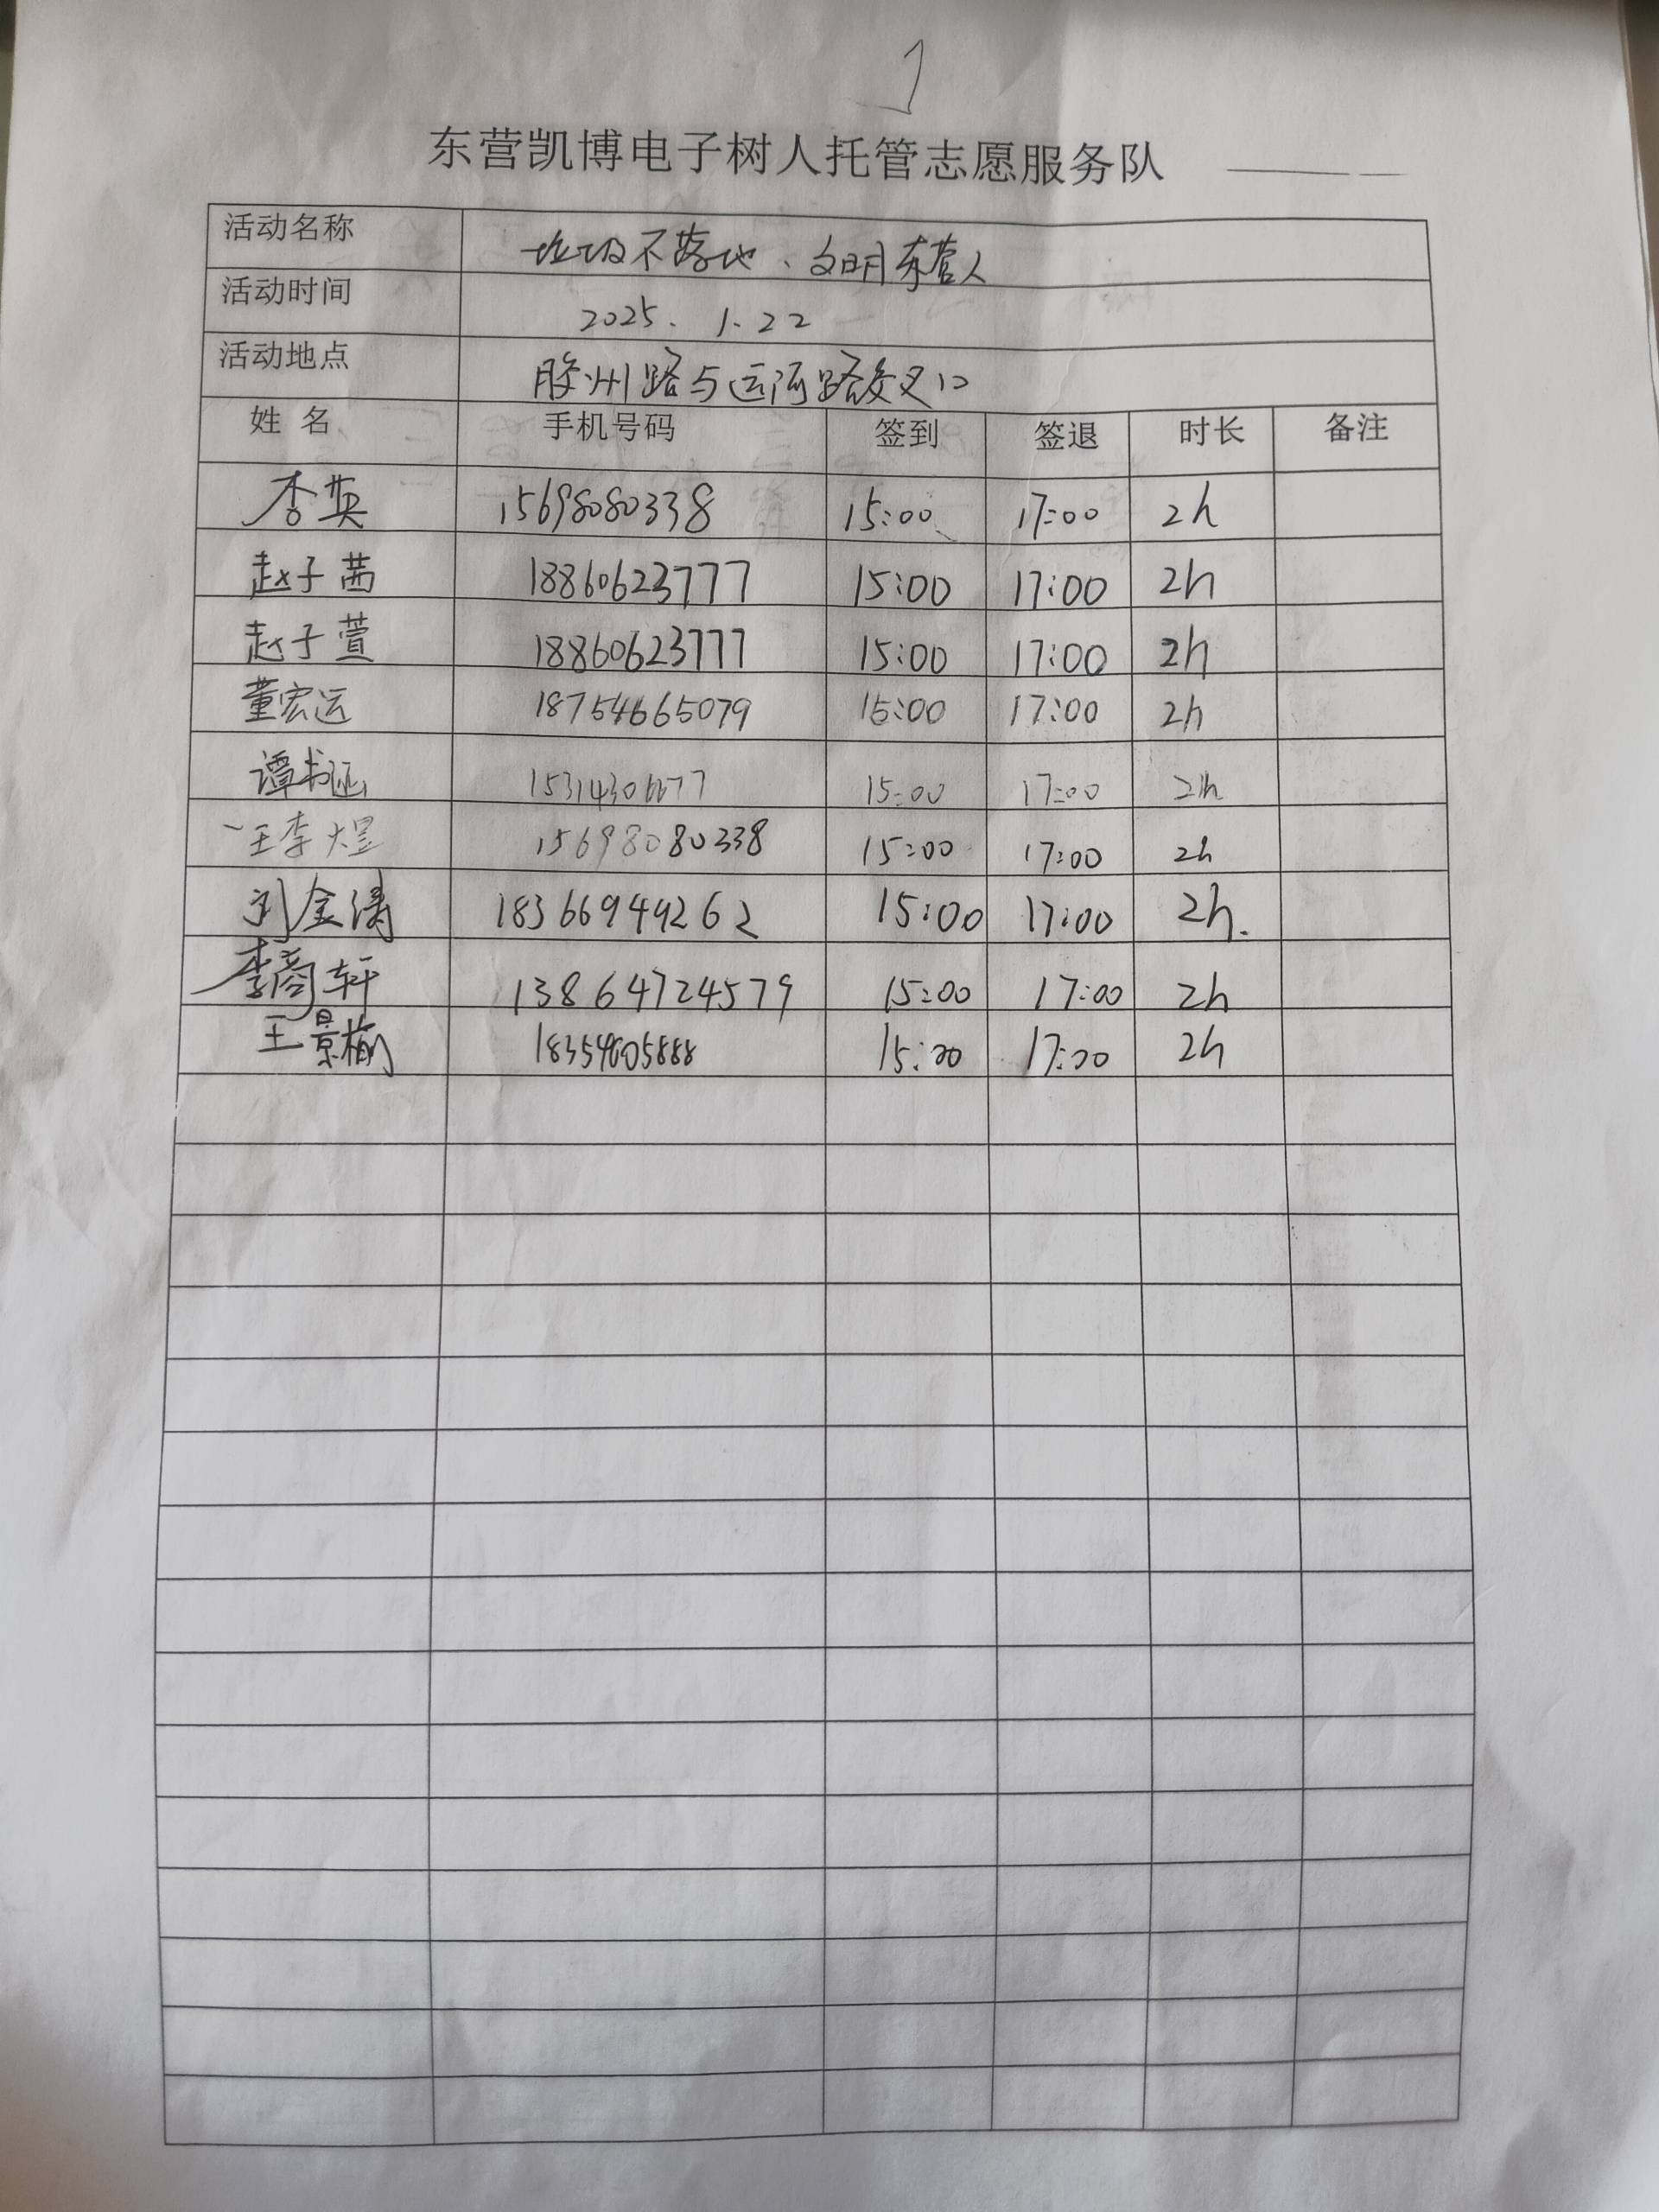 东营凯博电子树人托管志愿服务队
活动名称 垃圾不落地、文明东营人
活动时间 2025.1.22
活动地点 胶州路与运河路交叉口
姓名 手机号码 签到 签退 时长 备注
李英 15698080338 15:00 17:00 2h
赵子茜 18860623777 15:00 17:00 2h
赵子萱 18860623777 15:00 17:00 2h
董宏远 18754665079 15:00 17:00 2h
谭 15:00 17:00 2h
王李煜 15698080338 15:00 17:00 2h
刘金涛 18366949262 15:00 17:00 2h.
李商轩 13864724579 15:00 17:00 2h
王景榆 18354605888 15:00 17:00 2h